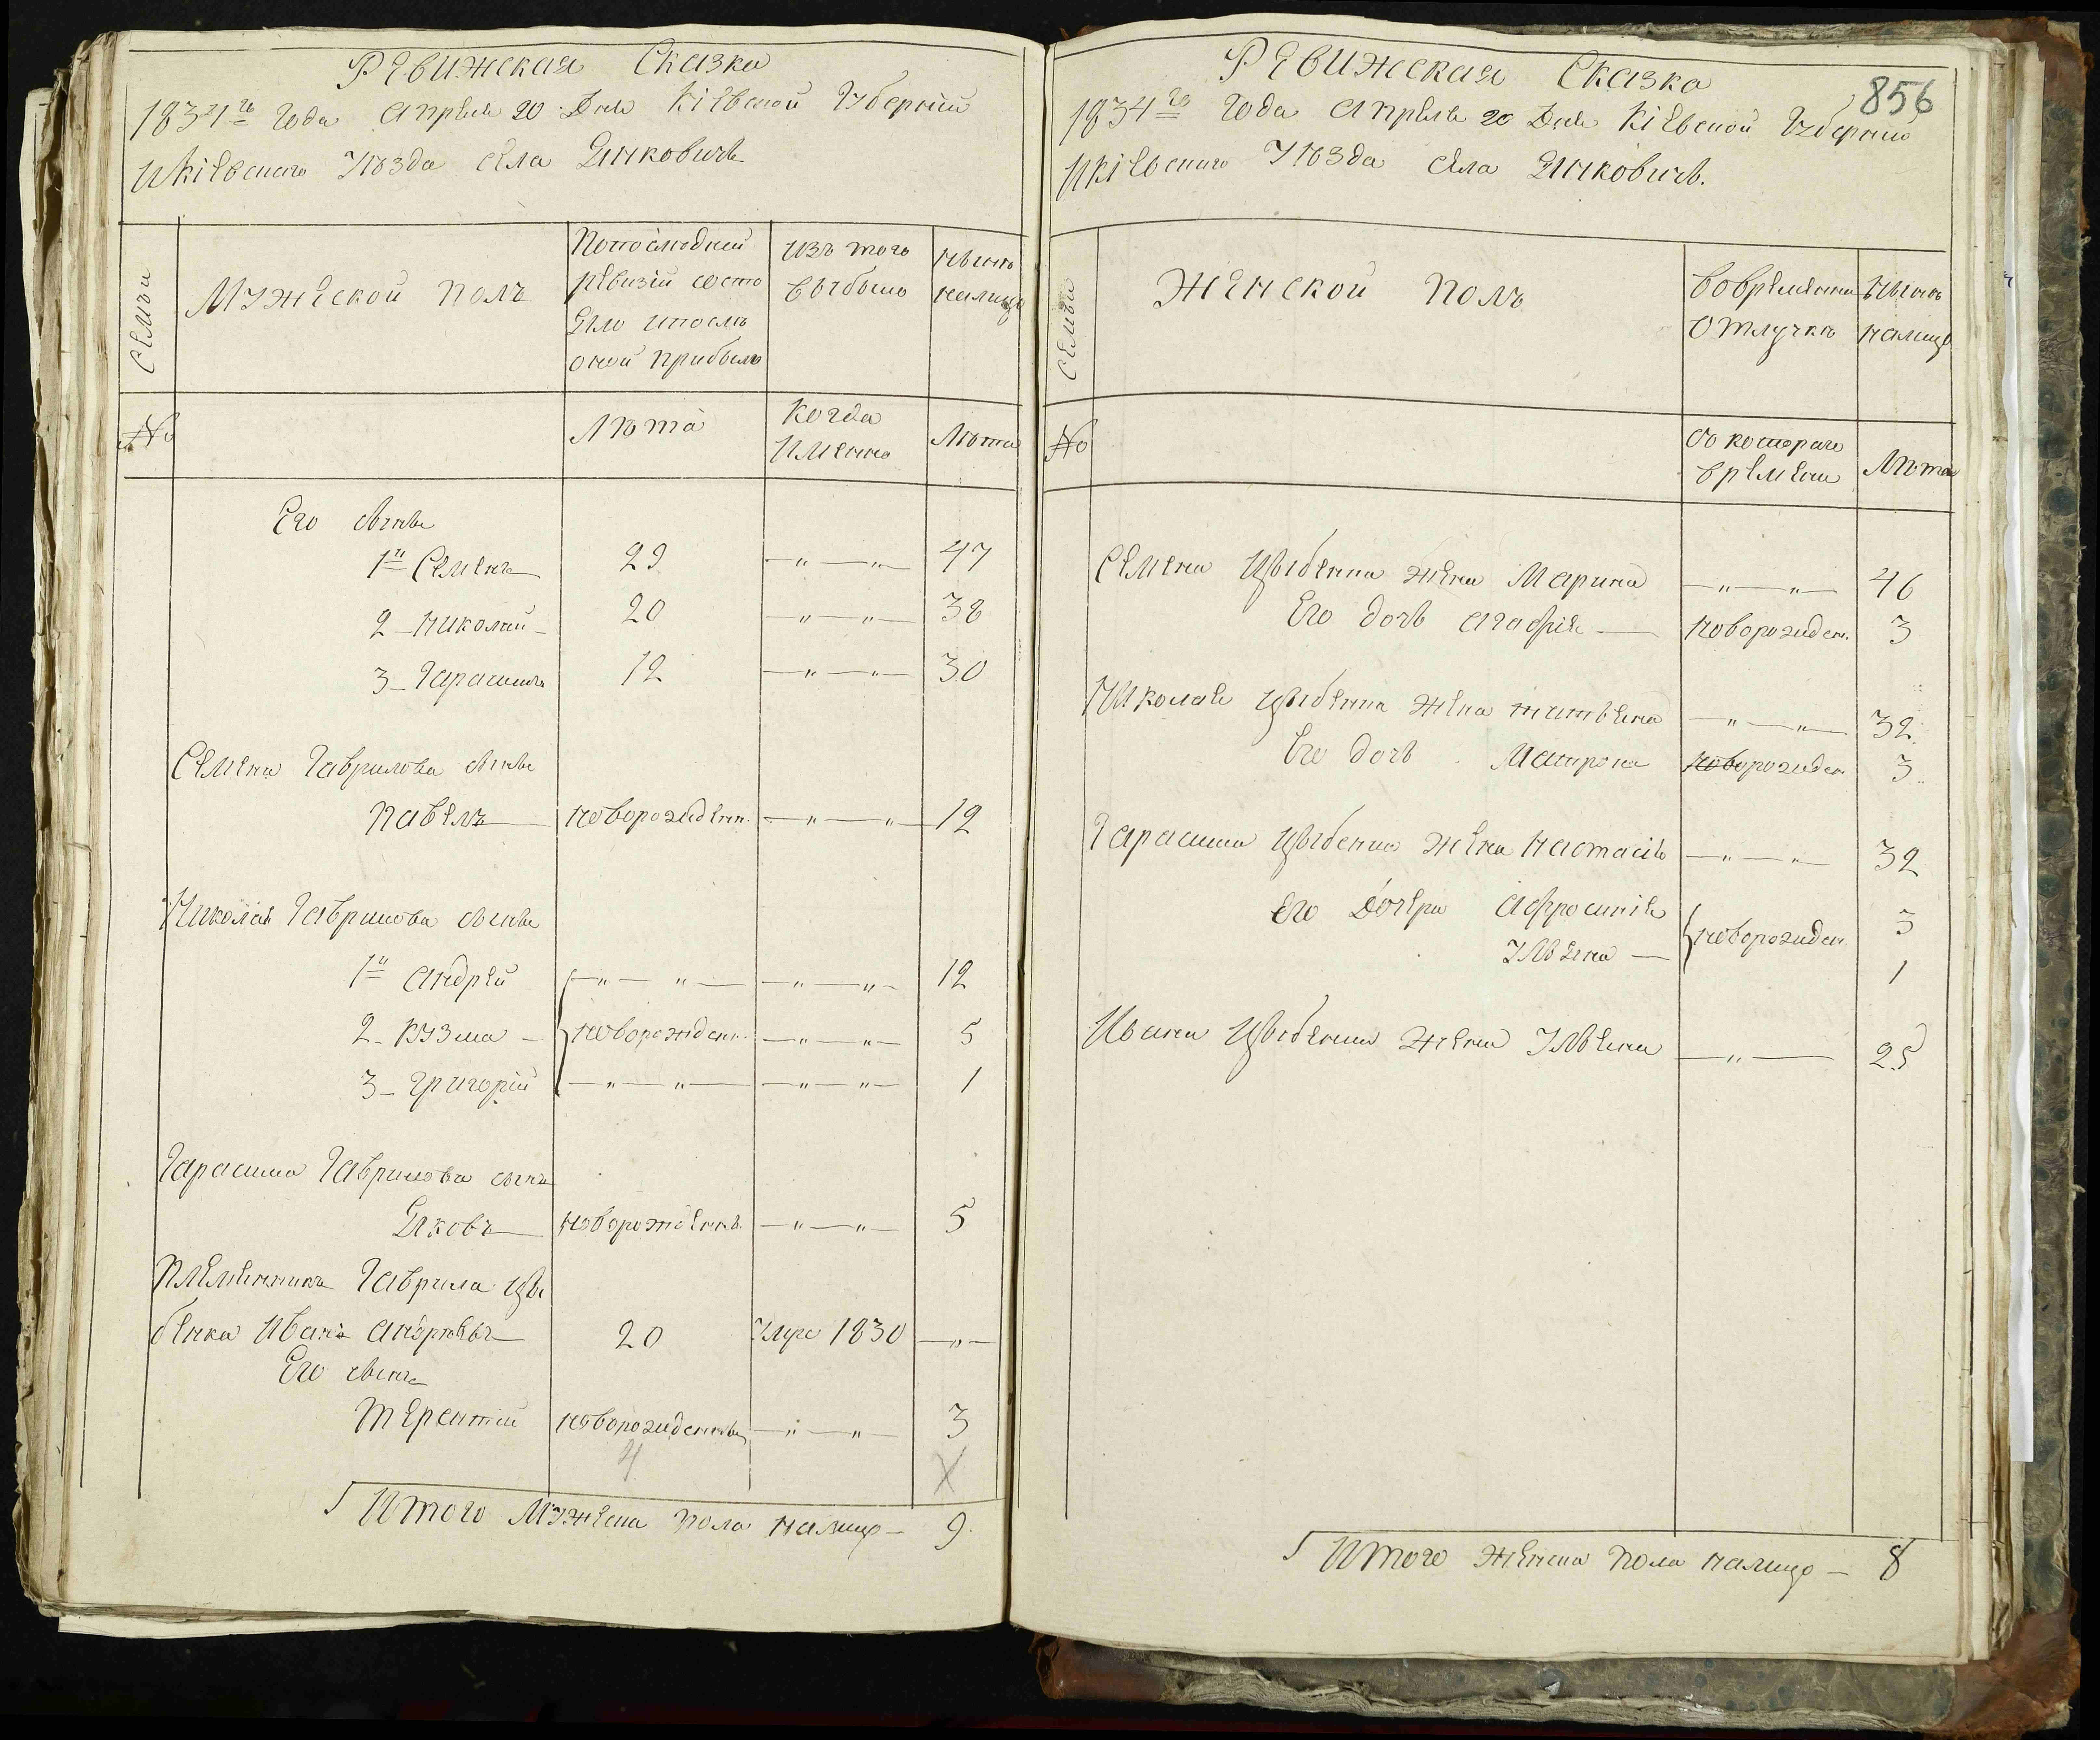 Ревижская Сказка
1834го года апреля 20 Дня Кіевской Губерніи
и Кіевскаго Уѣзда села Янковичь
Семьи
Мужеской полъ
По последней
ревизіи состо
яло и после
оной прибыло
изъ того
выбыло
ныне
на лицо
№
Лѣта
Когда
Именно
Лѣта
Его сыны
1й Семенъ 29 —„—„— 47
2 - Николай - 20 —„—„— 38
3 - Гарасимъ 12 —„—„— 30
Семена Гаврилова сыны
Павелъ новорожденн. —„—„— 12
Николая Гаврилова сыны
1й Андрей —„—„— —„—„— 12
2 - Кузма - новорожденн. —„—„— 5
3 - Григорій —„—„— —„—„— 1
Гарасима Гаврилова сынъ
Яковъ новорожденнъ —„—„— 5
Племянникъ Гаврила Цы
бенка Иванъ Андреевъ 20 Умре 1830 —„—
Его сынъ
Терентий новорожденны —„—„— 3
Итого Мужеска пола налицо — 9.
856
Ревижская Сказка
1834го года апреля 20 Дня Кіевской Губерніи
и Кіевскаго Уѣзда села Янковичь.
Семьи
Женской полъ
во временной
отлучкѣ
ныне
налицо
№
Со котораго
времени
Лѣта
Семена Цыбенка жена Марина —„—„— 46
Его дочь Агафія — новорожден. 3
Николая Цыбенка жена —„—„— 32
Его дочь Матрона новорожден. 3
Гарасима Цыбенка жена Настасія —„—„— 32
Его Дочери Афросинія новорожден. 3
Ульяна — 1
Ивана Цыбенка жена Ульяна —„— 25
Итого женска пола налицо — 8